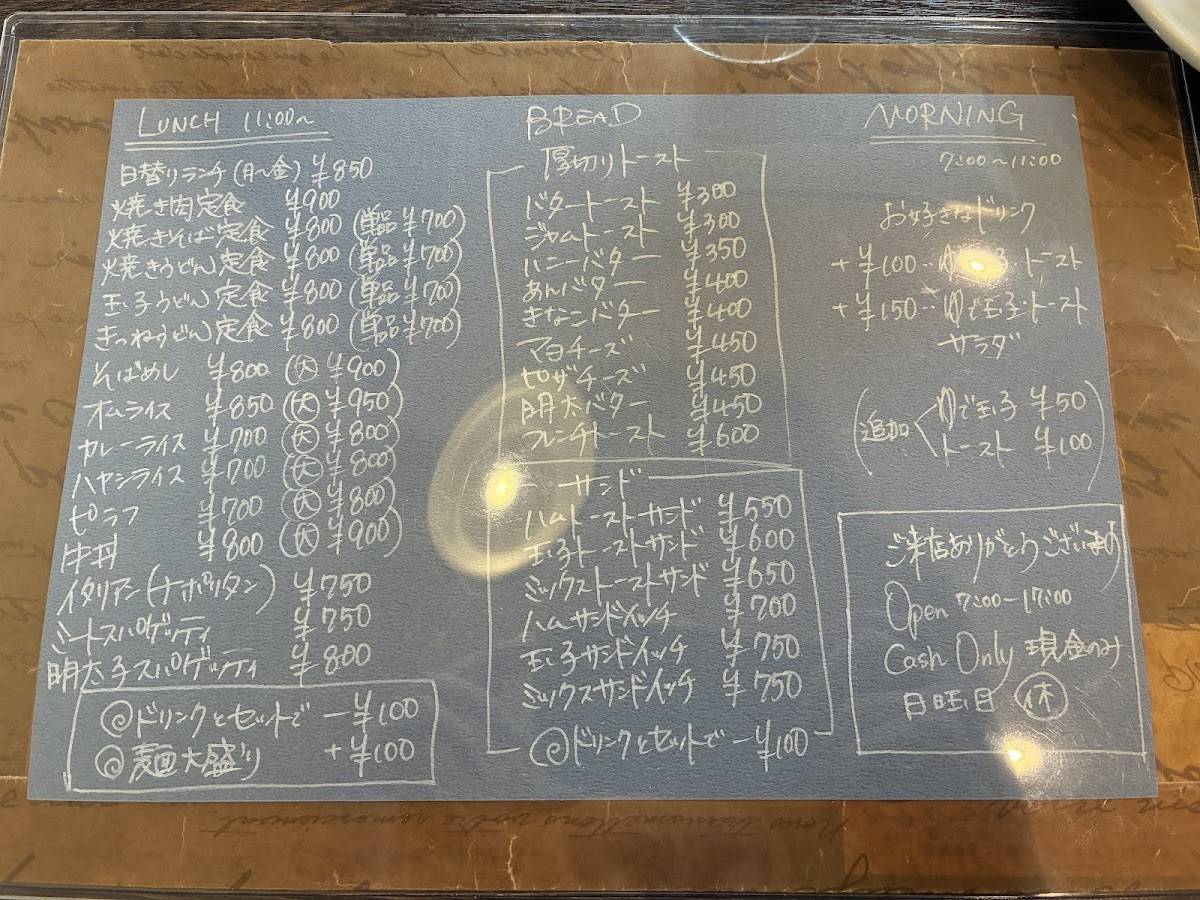 LUNCH 11:00~
日替りランチ(月~金) ¥850
焼き肉定食 ¥900
焼きそば定食 ¥800 (単品¥700)
焼きうどん定食 ¥800 (単品¥700)
玉子うどん定食 ¥800 (単品¥700)
きつねうどん定食 ¥800 (単品¥700)
そばめし ¥800 (大 ¥900)
オムライス ¥850 (大 ¥950)
カレーライス ¥700 (大 ¥800)
ハヤシライス ¥700 (大 ¥800)
ピラフ ¥700 (大 ¥800)
牛丼 ¥800 (大 ¥900)
イタリアン(ナポリタン) ¥750
ミートスパゲッティ ¥750
明太子スパゲッティ ¥800
◎ドリンクとセットで -¥100
◎麺大盛り +¥100
BREAD
厚切りトースト
バタートースト ¥300
ジャムトースト ¥300
ハニーバター ¥350
あんバター ¥400
きなこバター ¥400
マヨチーズ ¥450
ピザチーズ ¥450
明太バター ¥450
フレンチトースト ¥600
サンド
ハムトーストサンド ¥550
玉子トーストサンド ¥600
ミックストーストサンド ¥650
ハムサンドイッチ ¥700
玉子サンドイッチ ¥750
ミックスサンドイッチ ¥750
◎ドリンクとセットで -¥100
MORNING
7:00~11:00
お好きなドリンク
+¥100‥ゆで玉子・トースト
+¥150‥ゆで玉子・トースト
サラダ
(追加 ゆで玉子 ¥50
トースト ¥100)
ご来店ありがとうございます
Open 7:00-17:00
Cash Only 現金のみ
日曜日 休